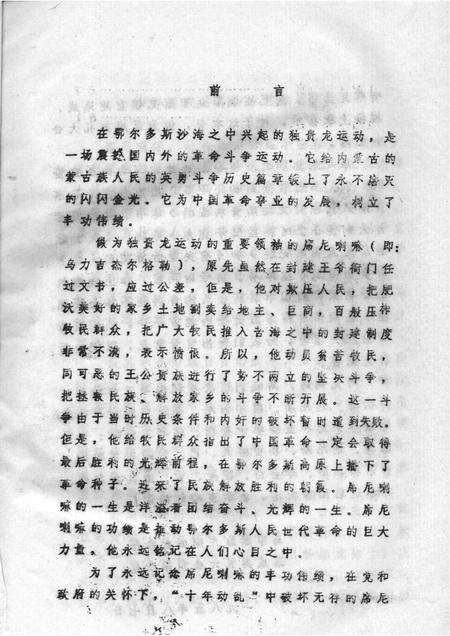 前 言
在鄂尔多斯沙海之中兴起的独贵龙运动，是
一场震撼国内外的革命斗争运动。它给内蒙古的
蒙古族人民的英勇斗争历史篇章镀上了永不磨灭
的闪闪金光。它为中国革命事业的发展，树立了
丰功伟绩。
做为独贵龙运动的重要领袖的席尼喇嘛（即：
乌力吉杰尔格勒），原先虽然在封建王爷衙门任
过文书，应过公差，但是，他对欺压人民，把肥
沃美好的家乡土地割卖给地主、巨商，百般压榨
牧民群众，把广大牧民推入苦海之中的封建制度
非常不满，表示愤恨。所以，他动员贫苦牧民，
同可恶的王公贵族进行了势不两立的坚决斗争，
把拯救民族、解放家乡的斗争不断开展。这一斗
争由于当时历史条件和内奸的破坏暂时遭到失败。
但是，他给牧民群众指出了中国革命一定会取得
最后胜利的光辉前程，在鄂尔多斯高原上播下了
革命种子。迎来了民族解放胜利的朝霞。席尼喇
嘛的一生是洋溢着团结奋斗、光辉的一生。席尼
喇嘛的功绩是推动鄂尔多斯人民世代革命的巨大
力量。他永远铭记在人们心目之中。
为了永远记念席尼喇嘛的丰功伟绩，在党和
政府的关怀下，“十年动乱”中破坏无存的席尼